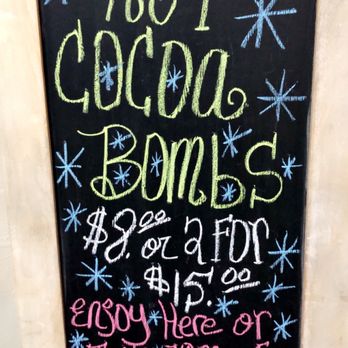 HOT
COCOA
BOMBS
$8.00 or 2 FOR
$15.00
ENJOY Here or